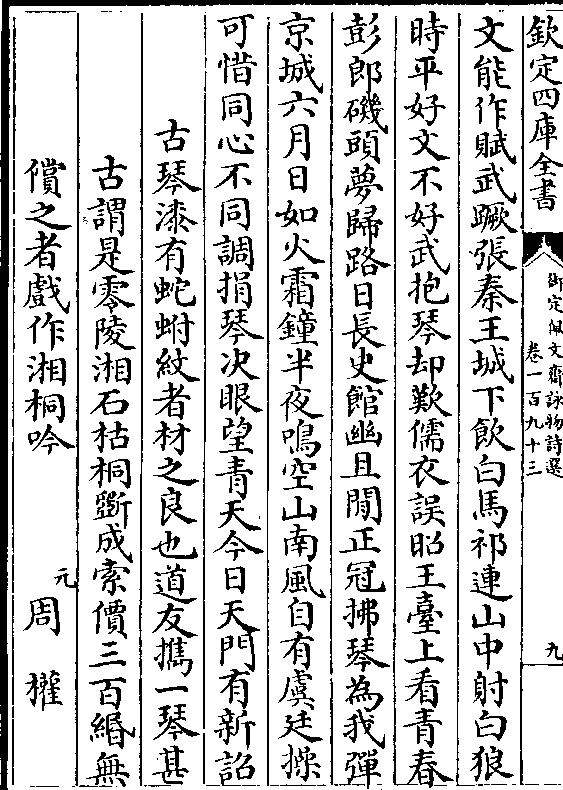 欽定四庫全書
御定佩文齋詠物詩選
卷一百九十三
九
文能作賦武蹶張秦王城下飲白馬祁連山中射白狼
時平好文不好武抱琴却歎儒衣誤昭王臺上看青春
彭郎磯頭夢歸路日長史館幽且閒正冠拂琴為我彈
京城六月日如火霜鐘半夜鳴空山南風自有虞廷操
可惜同心不同調捐琴決眼望青天今日天門有新詔
古琴漆有蛇蚹紋者材之良也道友擕一琴甚
古謂是零陵湘石枯桐斲成索價三百緡無
償之者戲作湘桐吟
元
周權